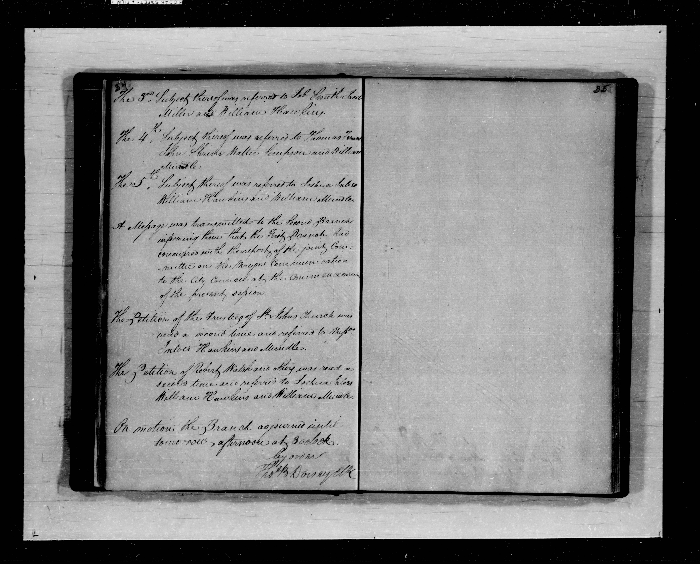 The 3rd Subject thereof was referred to Jas
Miller and William Hawkins
The 4th Subject thereof was referred to Thomas
John Walter Simpson and William
Minskle
The 5th Subject thereof was referred to Joshua
William Hawkins and William Minskle
A Message was transmitted to the Second Branch
informing them that the First Branch had
concurred with the report of the joint Com-
mittee on the Mayors Communication
to the City Council at the commencement
of the present session
The Petition of the Trustees of St. Johns Church was
read a second time and referred to Messrs
Hawkins and Minskle.
The Petition of Robert Walsh and others was read a
second time and referred to Joshua
William Hawkins and William Minskle.
On motion the Branch adjourned until
tomorrow afternoon at 3 oclock.
by order
Thos B Dorsey Clk
35